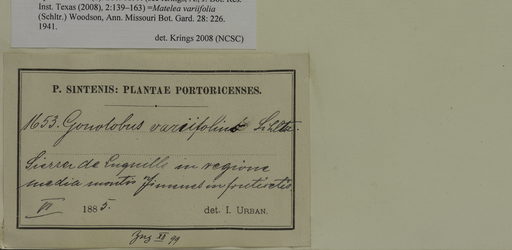 Inst. Texas (2008), 2:139–163) =Matelea variifolia
(Schltr.) Woodson, Ann. Missouri Bot. Gard. 28: 226.
1941.
det. Krings 2008 (NCSC)
P. SINTENIS: PLANTAE PORTORICENSES.
1653. Gonolobus variifolius Schltr.
Sierra de Luquillo in regione
media montis Jimenes in fruticetis.
VI 1885. det. I. URBAN.
XI 99